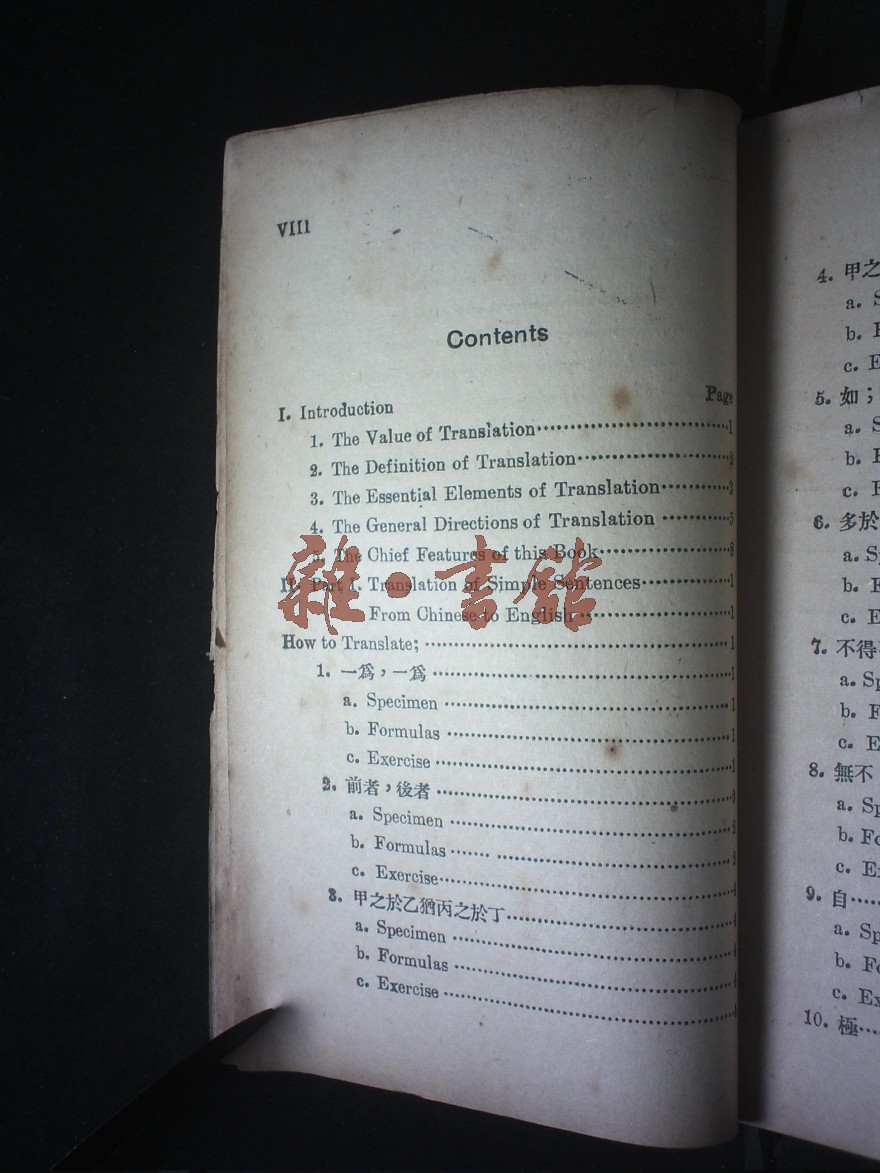 VIII
Contents
Page
I. Introduction
1. The Value of Translation 1
2. The Definition of Translation 2
3. The Essential Elements of Translation 3
4. The General Directions of Translation 5
5. The Chief Features of this Book 8
II. Part I. Translation of Simple Sentences 1
From Chinese to English 1
How to Translate; 1
1. 一爲，一爲 1
a. Specimen 1
b. Formulas 1
c. Exercise 1
2. 前者，後者
a. Specimen
b. Formulas
c. Exercise 4
3. 甲之於乙猶丙之於丁 4
a. Specimen 4
b. Formulas 4
c. Exercise 4
雜·書館
4. 甲之
a.
b.
c.
5. 如；
a.
b.
c.
6. 多於
a.
b.
c.
7. 不得
a.
b.
c.
8. 無不
a.
b.
c.
9. 自
a.
b.
c.
10. 極